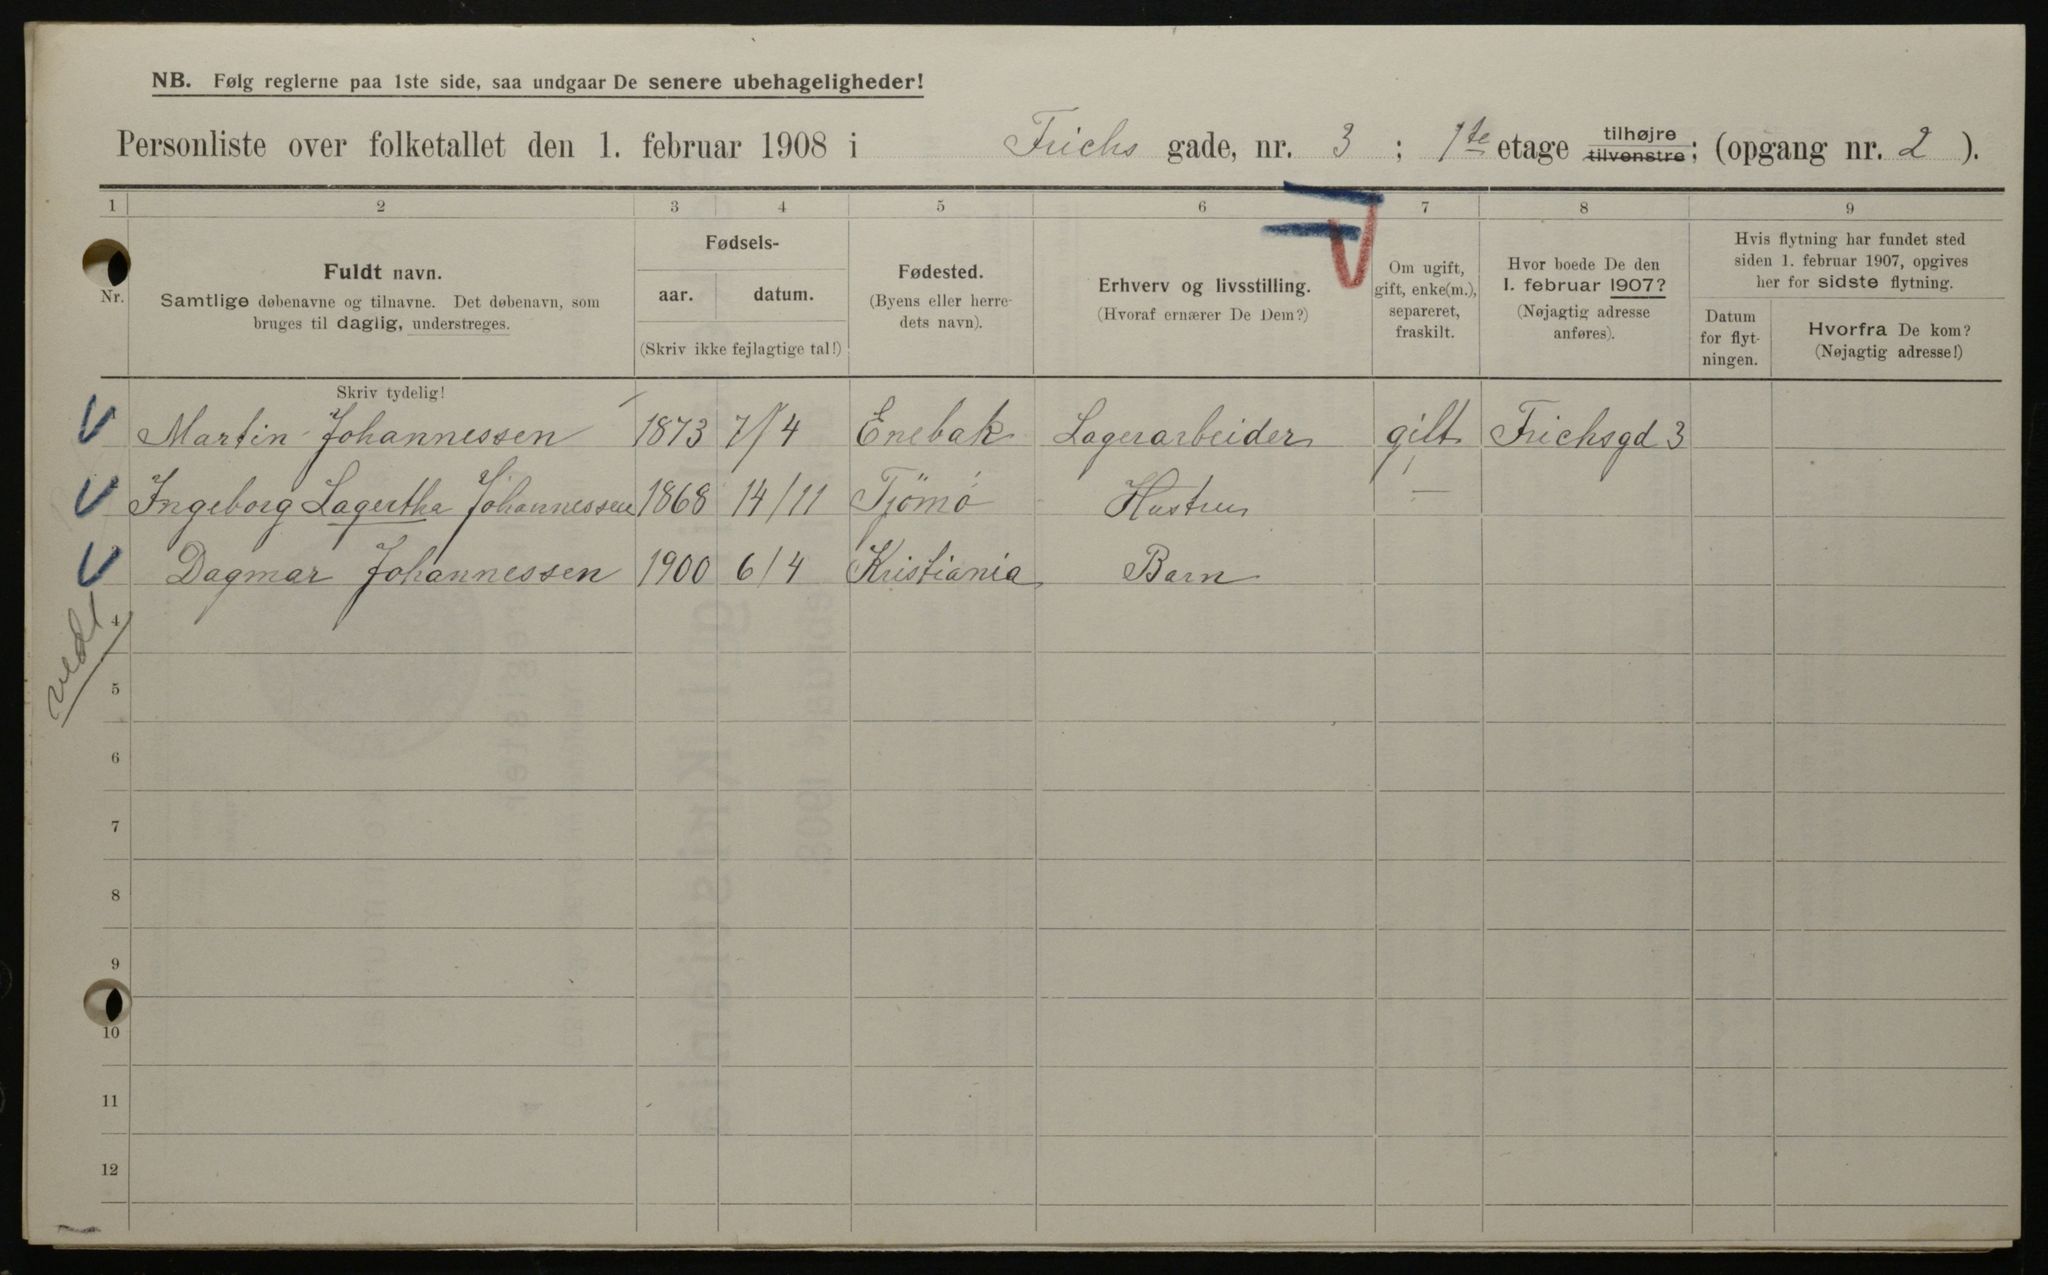 NB. Følg reglerne paa 1ste side, saa undgaar De senere ubehageligheder!
Personliste over folketallet den 1. februar 1908 i Frichs gade, nr. 3 ; 1te etage tilhøjre tilvenstre; (opgang nr. 2 ).
1 2 3 4 5 6 7 8 9
Nr.
Fuldt navn.
Samtlige døbenavne og tilnavne. Det døbenavn, som
bruges til daglig, understreges.
Fødsels-
aar. datum.
(Skriv ikke fejlagtige tal!)
Fødested.
(Byens eller herre-
dets navn).
Erhverv og livsstilling.
(Hvoraf ernærer De Dem?)
Om ugift,
gift, enke(m.),
separeret,
fraskilt.
Hvor boede De den
1. februar 1907?
(Nøjagtig adresse
anføres).
Hvis flytning har fundet sted
siden 1. februar 1907, opgives
her for sidste flytning.
Datum
for flyt-
ningen.
Hvorfra De kom?
(Nøjagtig adresse!)
Skriv tydelig!
Martin Johannessen 1873 7/4 Enebak Lagerarbeider gift Frichsgd 3
Ingeborg Lagertha Johannessen 1868 14/11 Tjömö Hustru —
Dagmar Johannessen 1900 6/4 Kristiania Barn
4
5
6
7
8
9
10
11
12